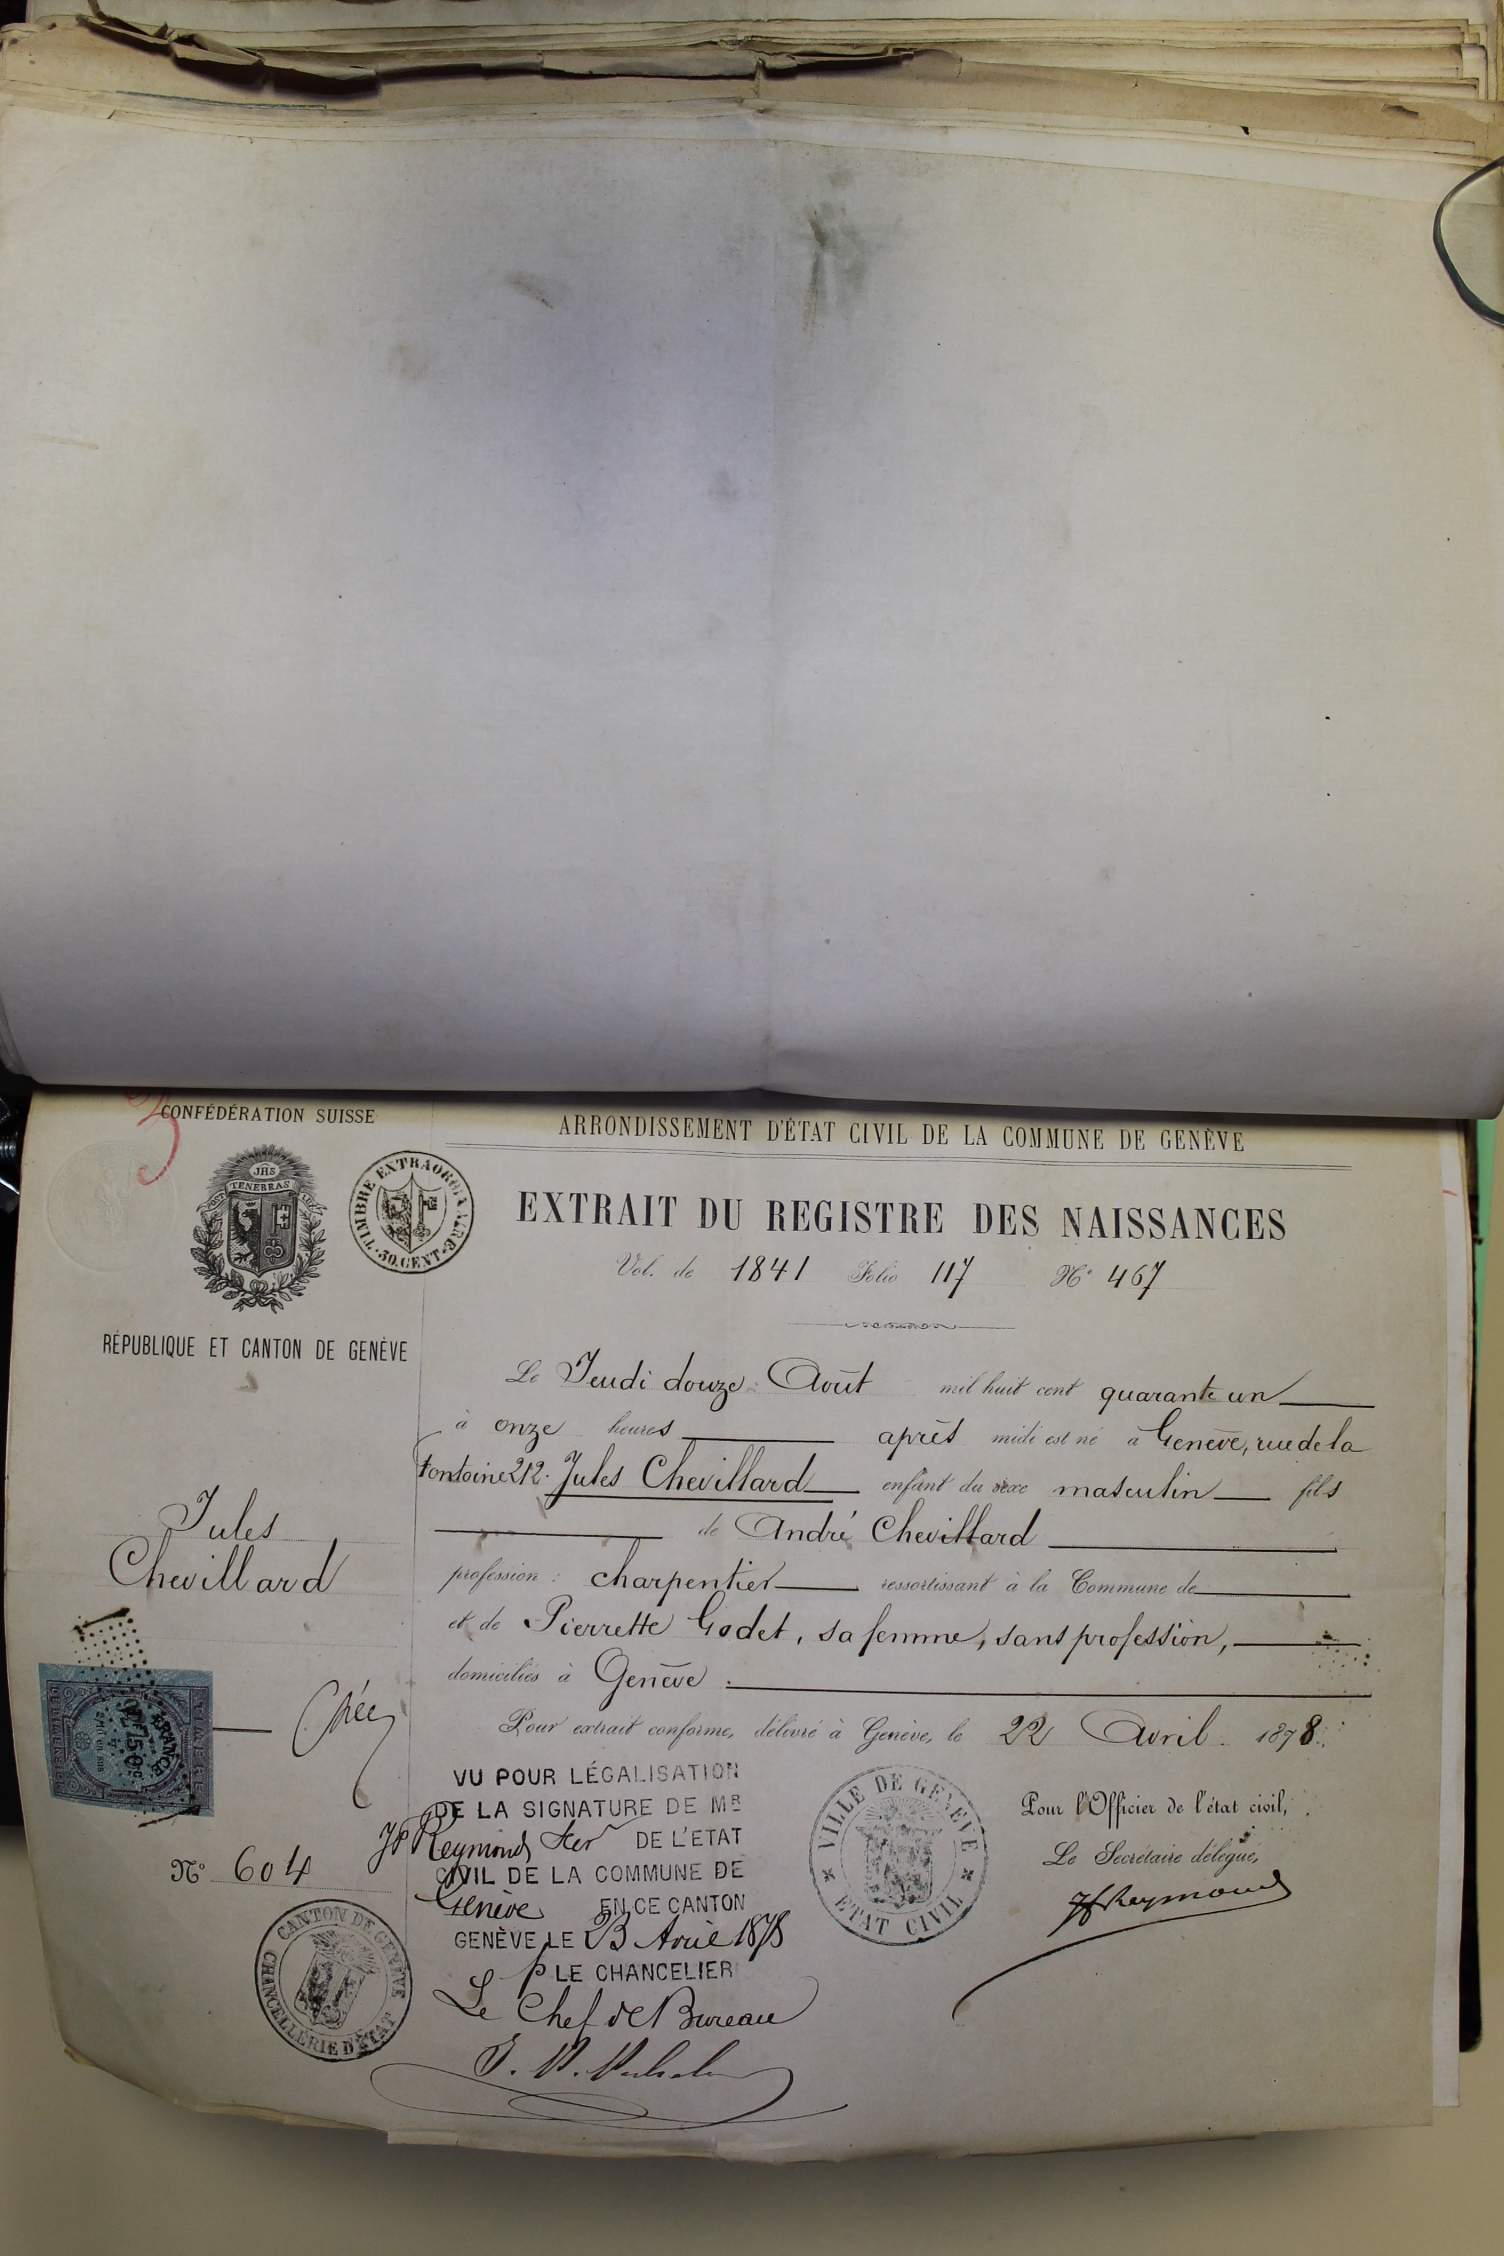 CONFÉDÉRATION SUISSE
JHS
POST TENEBRAS LUX
TIMBRE EXTRAORDINAIRE
30. CENT.
RÉPUBLIQUE ET CANTON DE GENÈVE
Jules
Chevillard
Nº 604
CANTON DE GENÈVE
CHANCELLERIE D'ÉTAT
ARRONDISSEMENT D'ÉTAT CIVIL DE LA COMMUNE DE GENÈVE
EXTRAIT DU REGISTRE DES NAISSANCES
Vol. de 1841 Folio 117 Nº 467
Le Jeudi douze Août mil huit cent quarante un
à onze heures après midi est né à Genève, rue de la
Fontaine 212. Jules Chevillard enfant du sexe masculin fils
de André Chevillard
profession : charpentier ressortissant à la Commune de
et de Pierrette Godet, sa femme, sans profession,
domiciliés à Genève.
Pour extrait conforme, délivré à Genève, le 22 Avril 1878.
VU POUR LÉGALISATION
DE LA SIGNATURE DE MR
JF Reymond Secr DE L'ETAT
CIVIL DE LA COMMUNE DE
Genève EN CE CANTON
GENÈVE LE 23 Avril 1878
p LE CHANCELIER
Le Chef de Bureau
VILLE DE GENÈVE
ETAT CIVIL
Pour l'Officier de l'état civil,
Le Secrétaire délégué,
JF Reymond